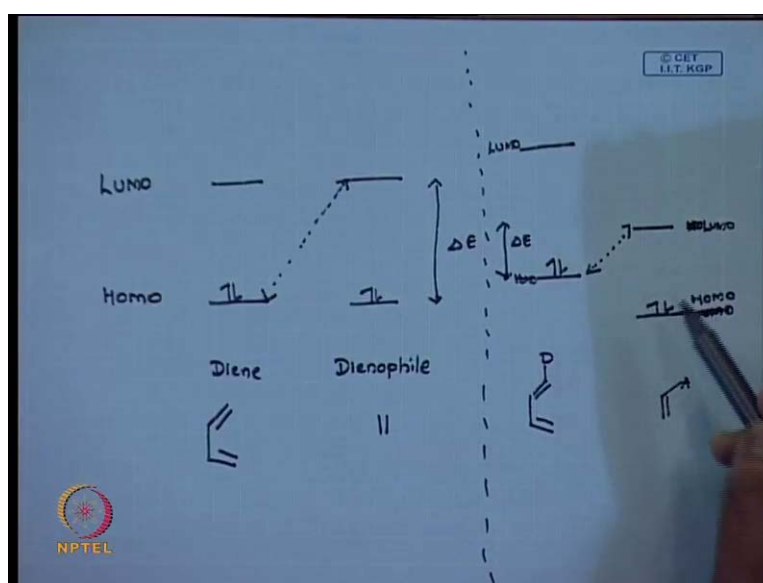 © CET
I.I.T. KGP
LUMO
HOMO
ΔE
Diene
Dienophile
LUMO
ΔE
LUMO
HOMO
D
NPTEL